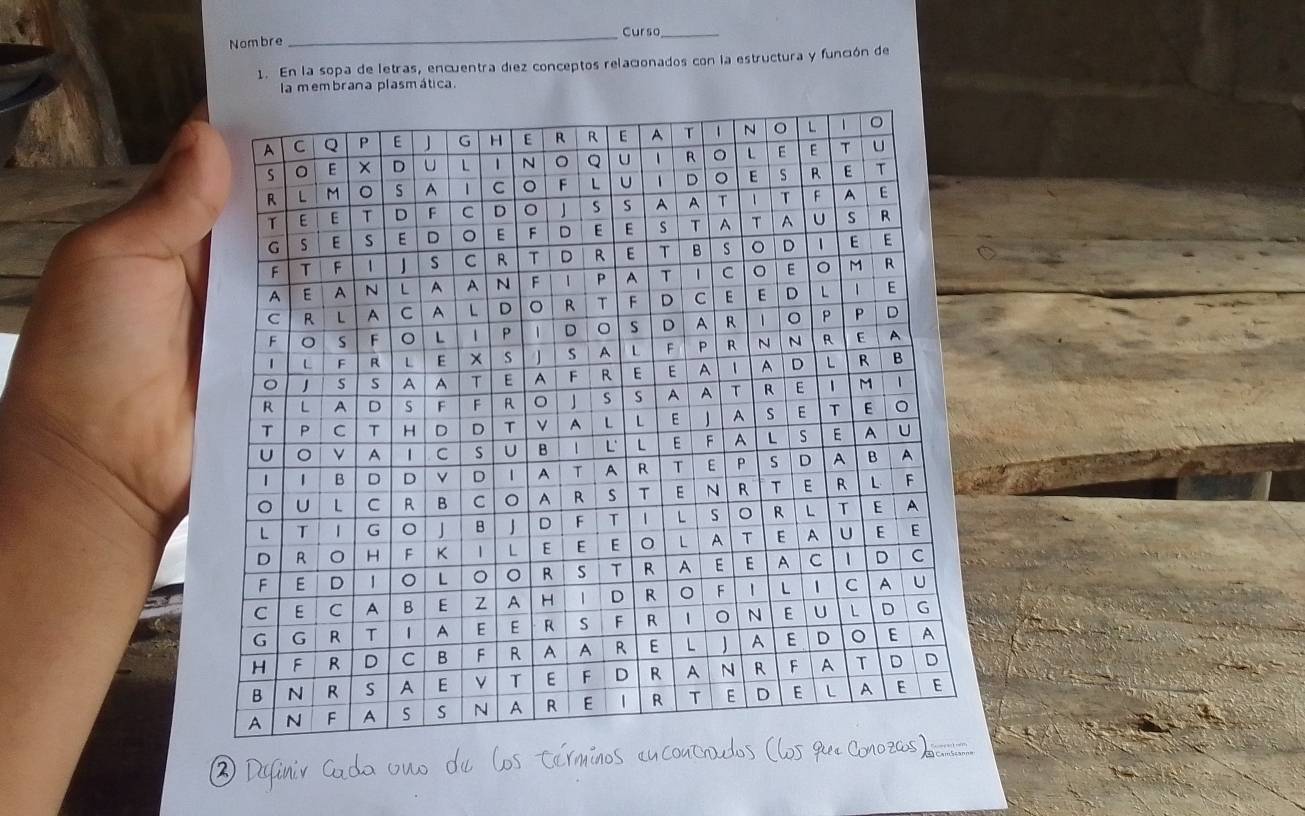 Nombre ____________ Curso________
1. En la sopa de letras, encuentra diez conceptos relacionados con la estructura y función de
la membrana plasmática.
A C Q P E J G H E R R E A T I N O L I O
S O E X D U L I N O Q U I R O L E E T U
R L M O S A I C O F L U I D O E S R E T
T E E T D F C D O J S S A A T I T F A E
G S E S E D O E F D E E S T A T A U S R
F T F I J S C R T D R E T B S O D I E E
A E A N L A A N F I P A T I C O E O M R
C R L A C A L D O R T F D C E E D L I E
F O S F O L I P I D O S D A R I O P P D
I L F R L E X S J S A L F P R N N R E A
O J S S A A T E A F R E E A I A D L R B
R L A D S F F R O J S S A A T R E I M I
T P C T H D D T V A L L E J A S E T E O
U O V A I C S U B I L L E F A L S E A U
I I B D D V D I A T A R T E P S D A B A
O U L C R B C O A R S T E N R T E R L F
L T I G O J B J D F T I L S O R L T E A
D R O H F K I L E E E O L A T E A U E E
F E D I O L O O R S T R A E E A C I D C
C E C A B E Z A H I D R O F I L I C A U
G G R T I A E E R S F R I O N E U L D G
H F R D C B F R A A R E L J A E D O E A
B N R S A E V T E F D R A N R F A T D D
A N F A S S N A R E I R T E D E L A E E
② Definir cada uno de los términos encontrados (los que conozcas)
CamScanne